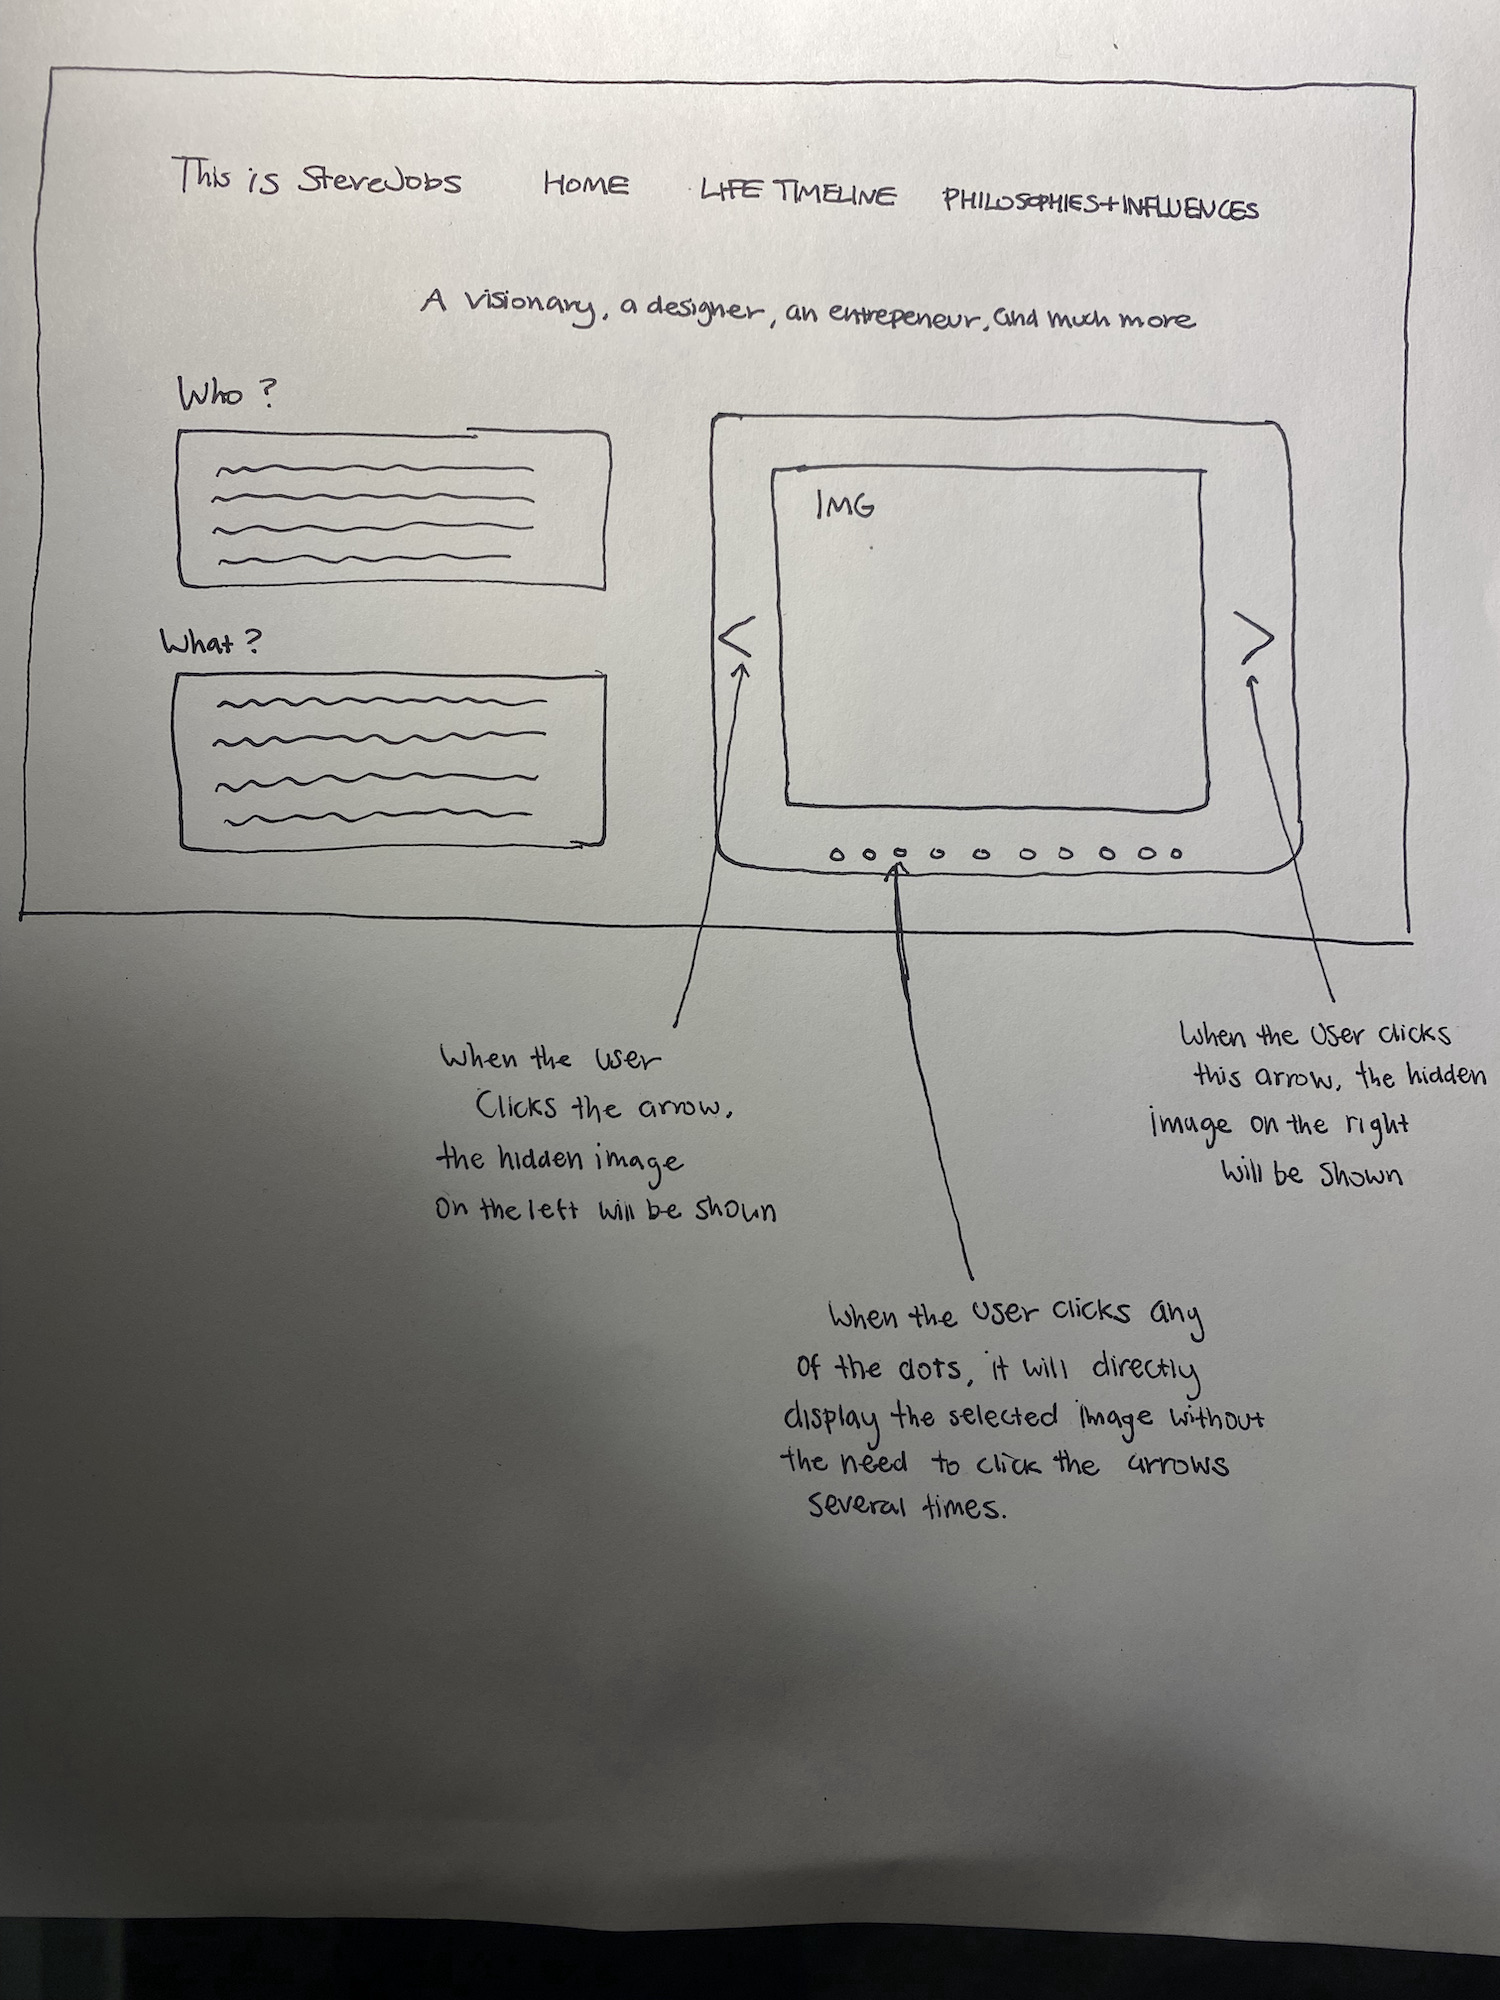 This is SteveJobs HOME LIFE TIMELINE PHILOSOPHIES+INFLUENCES
A visionary, a designer, an entrepeneur, and much more
Who ?
IMG
<
>
What ?
When the user
Clicks the arrow,
the hidden image
on the left will be shown
When the user clicks
this arrow, the hidden
image on the right
will be shown
When the user clicks any
of the dots, it will directly
display the selected image without
the need to click the arrows
several times.